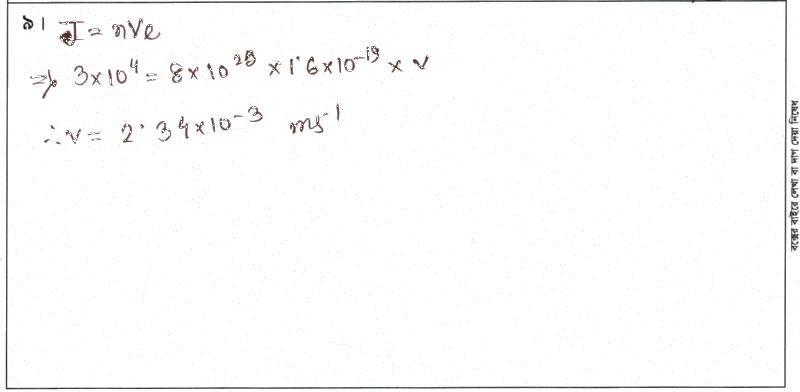 ৯। J = nve
⇒ 3×10⁴ = 8×10²⁸ × 1.6×10⁻¹⁹ × v
∴ v = 2.34×10⁻³ ms⁻¹
বক্সের বাইরে লেখা বা দাগ দেয়া নিষেধ